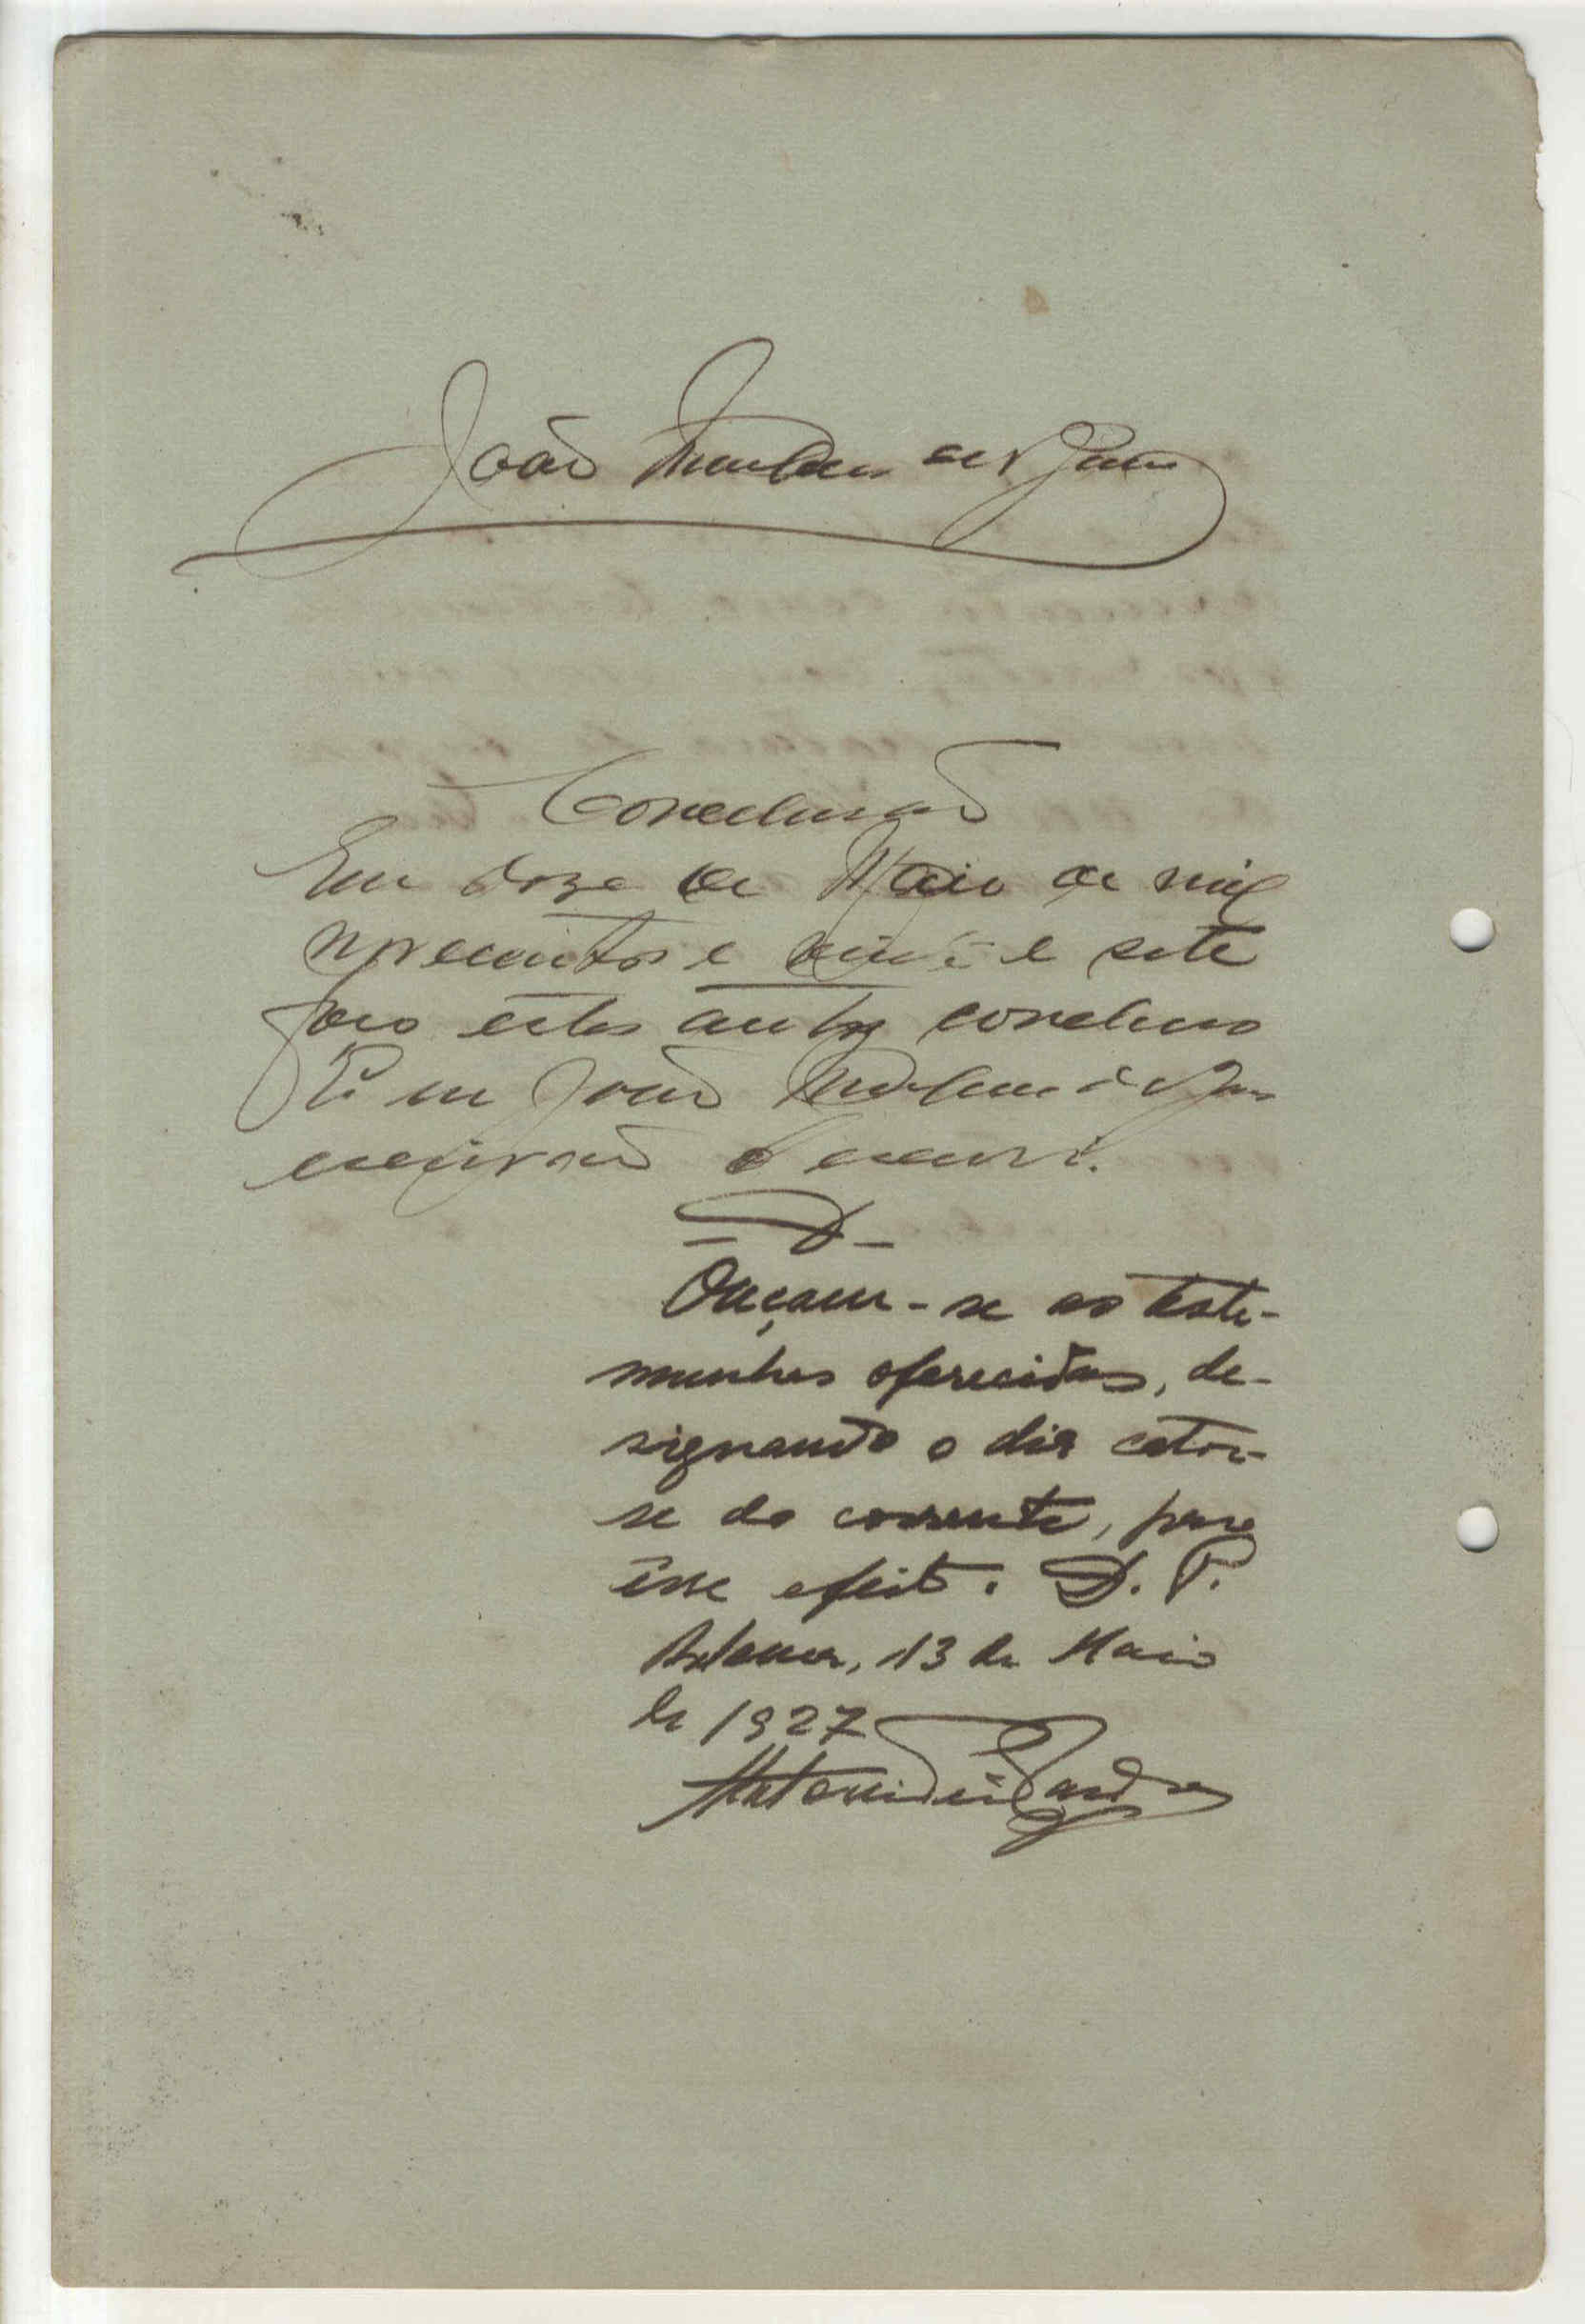 João
Conclusão
Em doze de Maio de mil
novecentos e vinte e sete
faço estes autos conclusos
E eu João
escrivão o escrevi.
D—
Ouçam-se as teste-
munhas oferecidas, de-
signando o dia cator-
se do corrente, para
êsse efeito. D. P.
13 de Maio
de 1927